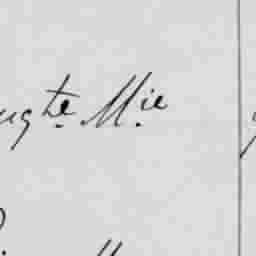 ugte. M.ie